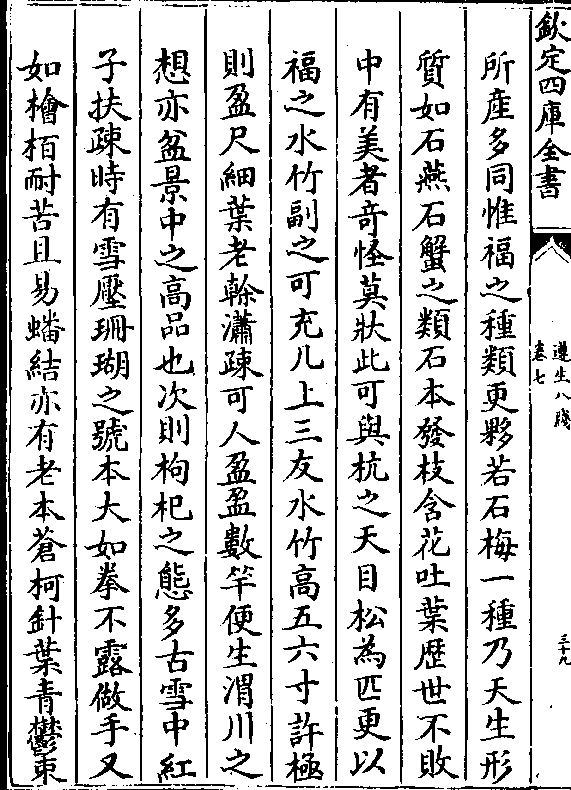 欽定四庫全書
遵生八牋
卷七
三十九
所產多同惟福之種類更夥若石梅一種乃天生形
質如石燕石蟹之類石本發枝含花吐葉歷世不敗
中有美者奇怪莫狀此可與杭之天目松為匹更以
福之水竹副之可充几上三友水竹高五六寸許極
則盈尺細葉老榦瀟疎可人盈盈數竿便生渭川之
想亦盆景中之高品也次則枸杞之態多古雪中紅
子扶疎時有雪壓珊瑚之號本大如拳不露做手又
如檜栢耐苦且易蟠結亦有老本蒼柯針葉青鬱束